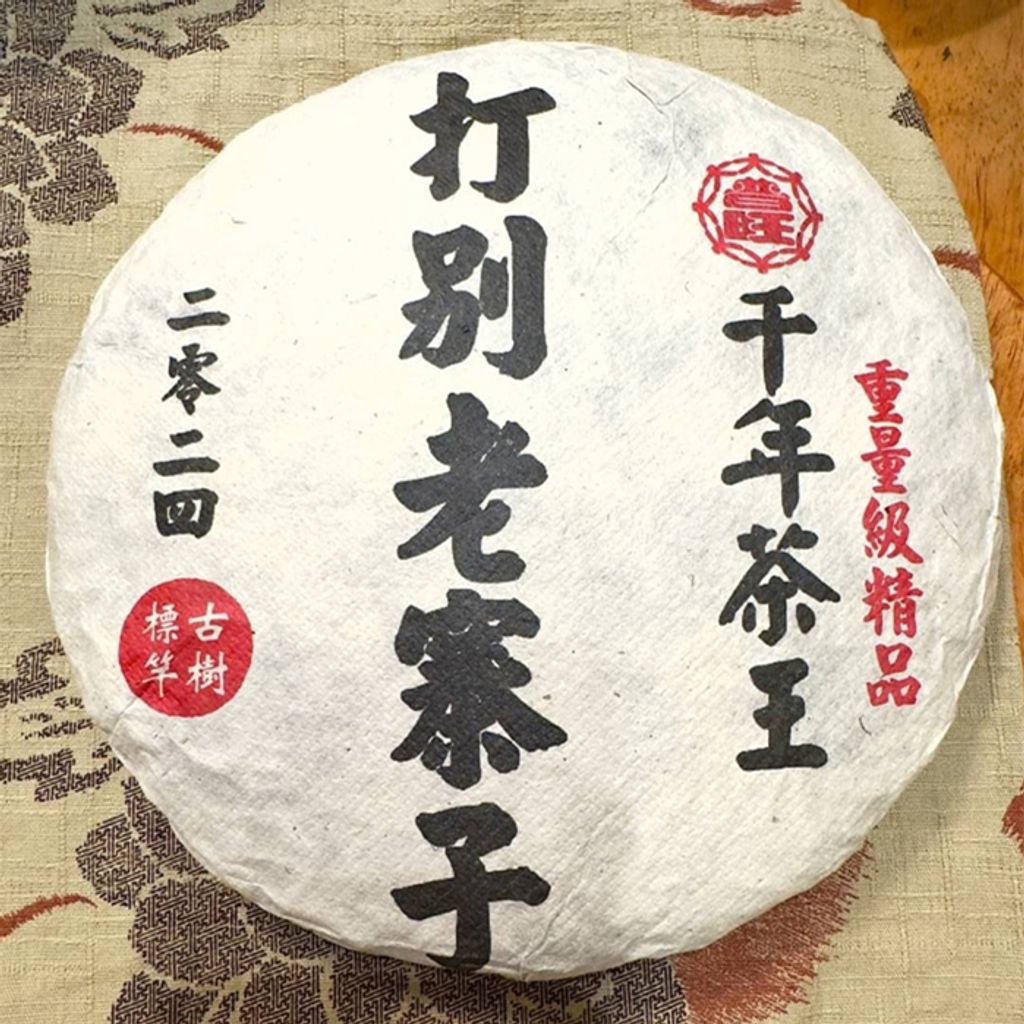 重量級精品
千年茶王
打別老寨子
二零二四
古樹
標竿